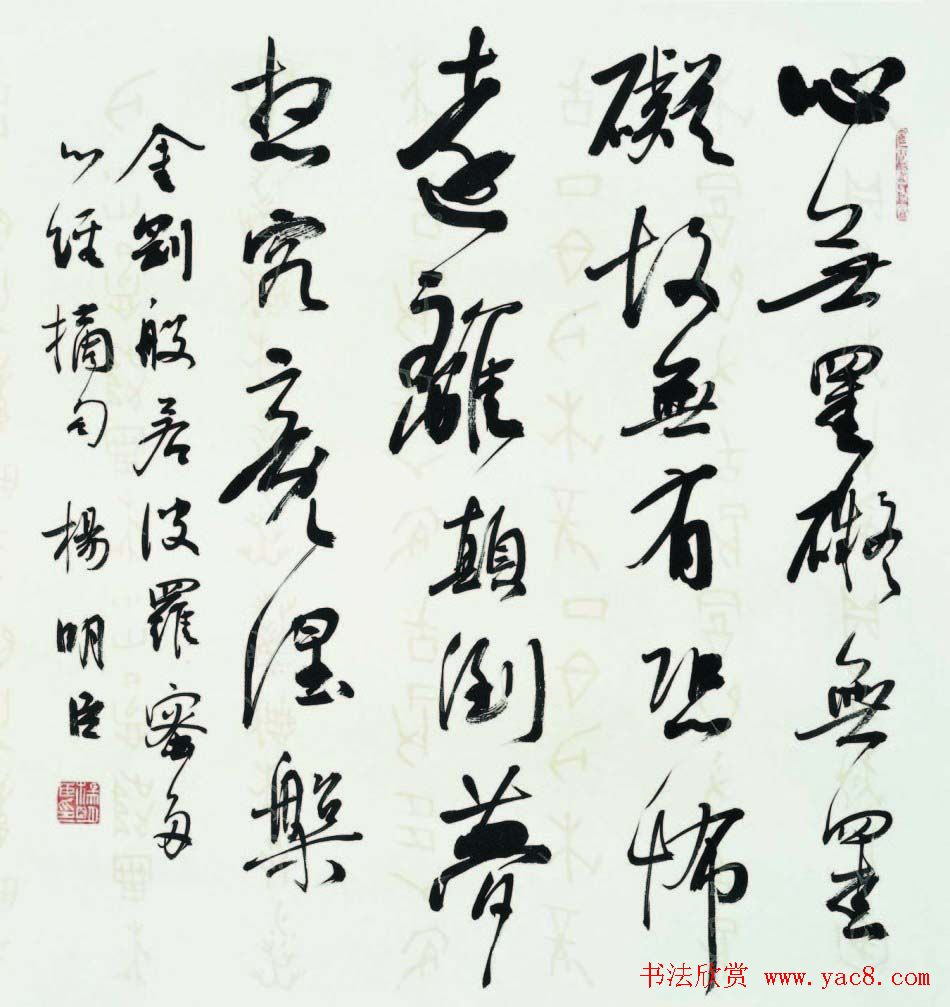 心無罣礙無罣
礙故無有恐怖
遠離顛倒夢
想究竟涅槃
金剛般若波羅蜜多
心經摘句 楊明臣
书法欣赏 www.yac8.com